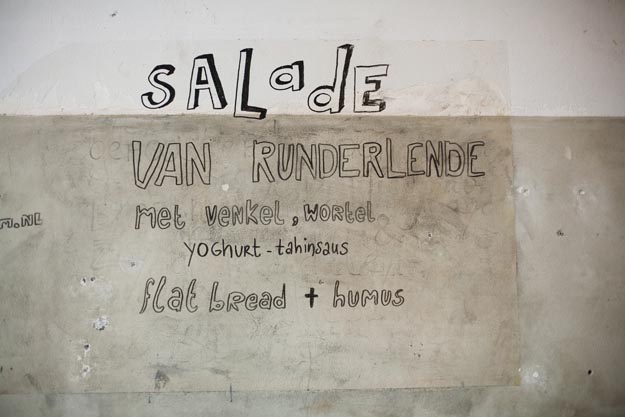 SALadE
VAN RUNDERLENDE
met venkel, wortel
YOGHURT - tahinsaus
flat bread + humus
M.NL